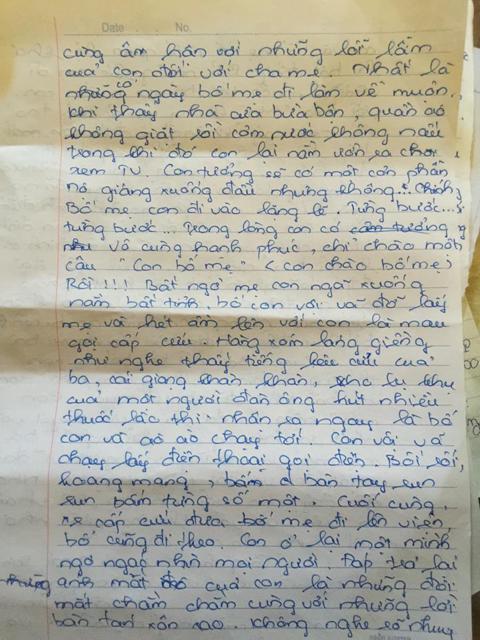 Date No.
cùng ân hận với những lỗi lầm
của con đối với cha mẹ. Nhất là
những có ngày bố mẹ đi làm về muộn.
khi thấy nhà cửa bừa bộn, quần áo
không giặt rồi cơm nước không nấu
trong khi đó con lại nằm ườn ra chơi,
xem TV. Con tưởng sẽ có một cơn phẫn
nộ giáng xuống đầu nhưng không...
Bố mẹ con đi vào lặng lẽ. Từng bước...
từng bước... Trong lòng con có cảm tưởng
như vô cùng hạnh phúc, chỉ chào một
câu "Con bố mẹ" < con chào bố mẹ >
Rồi!!! Bất ngờ mẹ con ngã xuống
nằm bất tỉnh, bố con vội vã đỡ lấy
mẹ và hét ầm lên với con là mau
gọi cấp cứu. Hàng xóm láng giềng
như nghe thấy tiếng kêu cứu của
ba, cái giọng khàn khàn,
của một người đàn ông hút nhiều
thuốc lắc thì nhận ra ngay là bố
con và ào ào chạy tới. Con vội vã
chạy lấy điện thoại gọi điện. Bối rối,
hoang mang, bấm bàn tay run
run bấm từng số một. Cuối cùng,
xe cấp cứu đưa bố mẹ đi lên viện,
bố cũng đi theo. Con ở lại một mình
ngơ ngác nhìn mọi người. Đáp trả lại
những ánh mắt đó của con là những đôi
mắt chằm chằm cùng với những lời
bàn tán xôn xao. Không nghe rõ nhưng